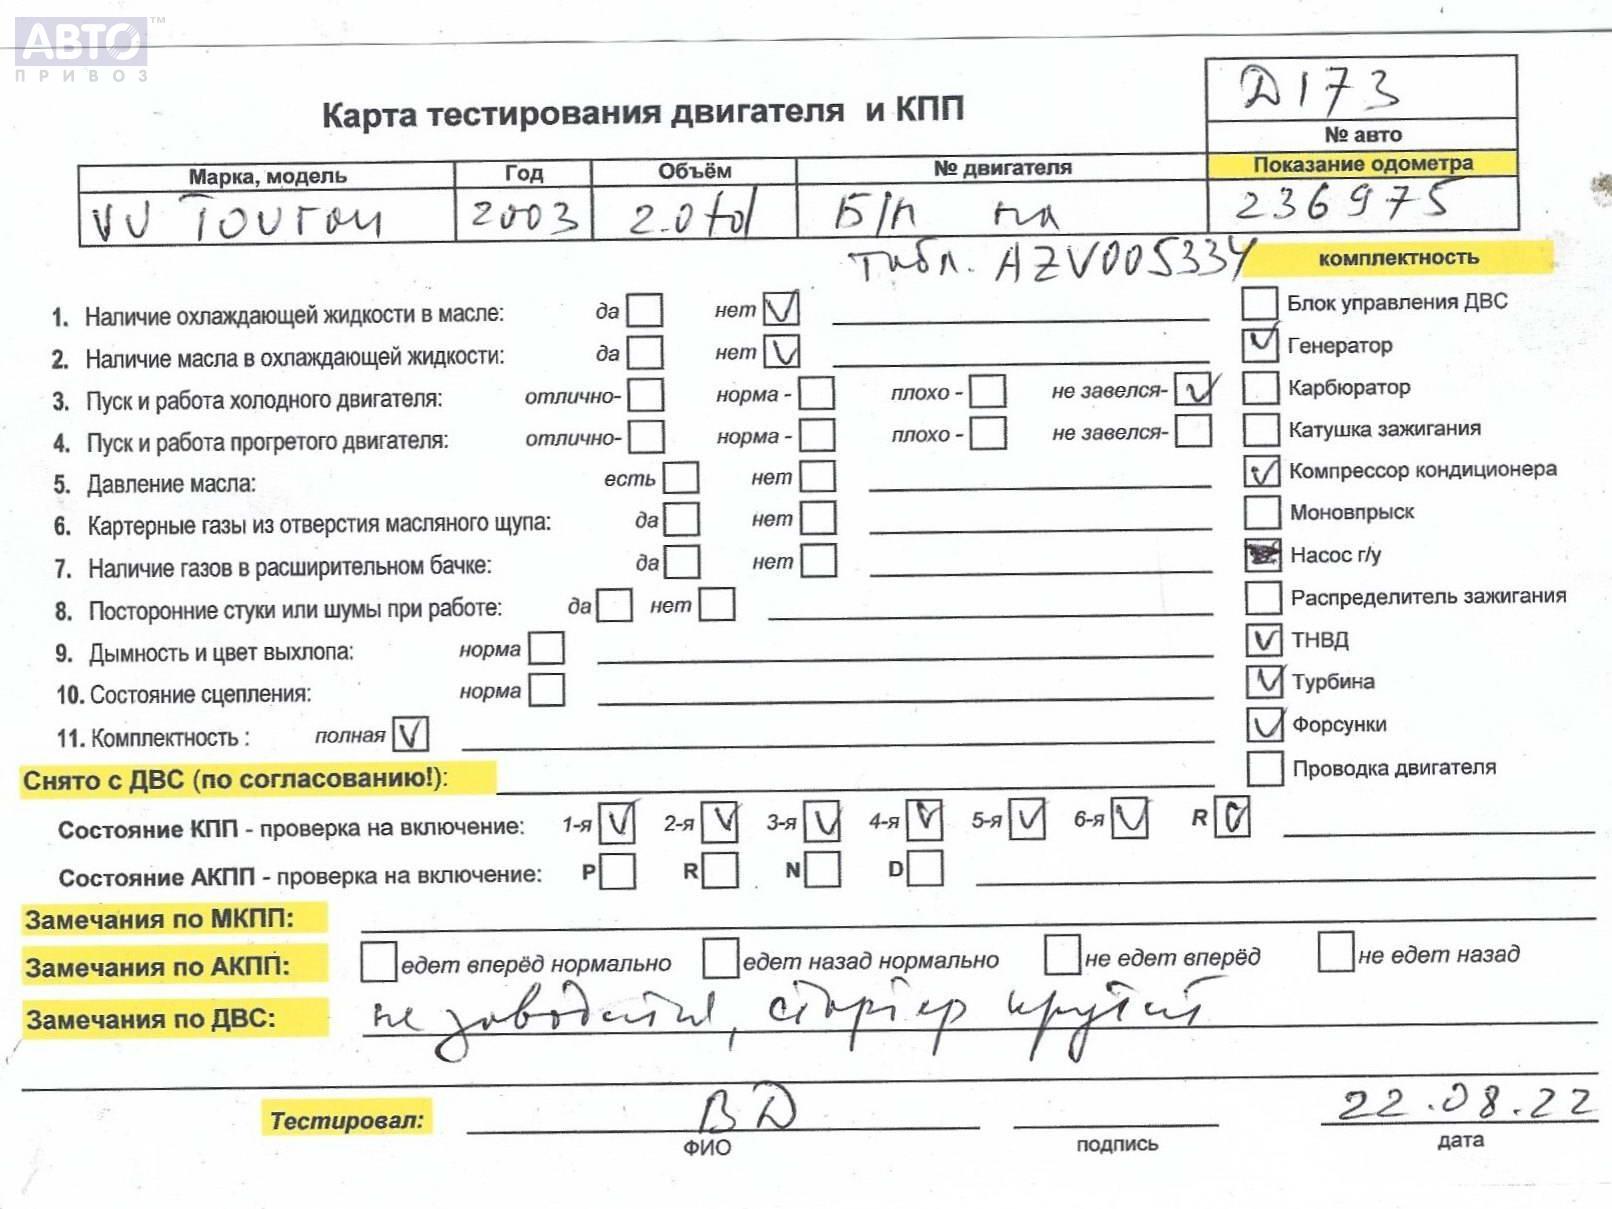 АВТО™
ПРИВОЗ
Д173
Карта тестирования двигателя и КПП
№ авто
Марка, модель Год Объём № двигателя Показание одометра
VW Touran 2003 2.0 td Б/н на 236975
табл. AZV005334
комплектность
1. Наличие охлаждающей жидкости в масле: да нет V Блок управления ДВС
2. Наличие масла в охлаждающей жидкости: да нет V V Генератор
3. Пуск и работа холодного двигателя: отлично- норма - плохо - не завелся- V Карбюратор
4. Пуск и работа прогретого двигателя: отлично- норма - плохо - не завелся- Катушка зажигания
5. Давление масла: есть нет V Компрессор кондиционера
6. Картерные газы из отверстия масляного щупа: да нет Моновпрыск
7. Наличие газов в расширительном бачке: да нет Насос г/у
8. Посторонние стуки или шумы при работе: да нет Распределитель зажигания
9. Дымность и цвет выхлопа: норма V ТНВД
10. Состояние сцепления: норма V Турбина
11. Комплектность : полная V V Форсунки
Снято с ДВС (по согласованию!): Проводка двигателя
Состояние КПП - проверка на включение: 1-я V 2-я V 3-я V 4-я V 5-я V 6-я V R V
Состояние АКПП - проверка на включение: P R N D
Замечания по МКПП:
Замечания по АКПП: едет вперёд нормально едет назад нормально не едет вперёд не едет назад
Замечания по ДВС: не заводится, стартер крутит
Тестировал: ВД 22.08.22
ФИО подпись дата